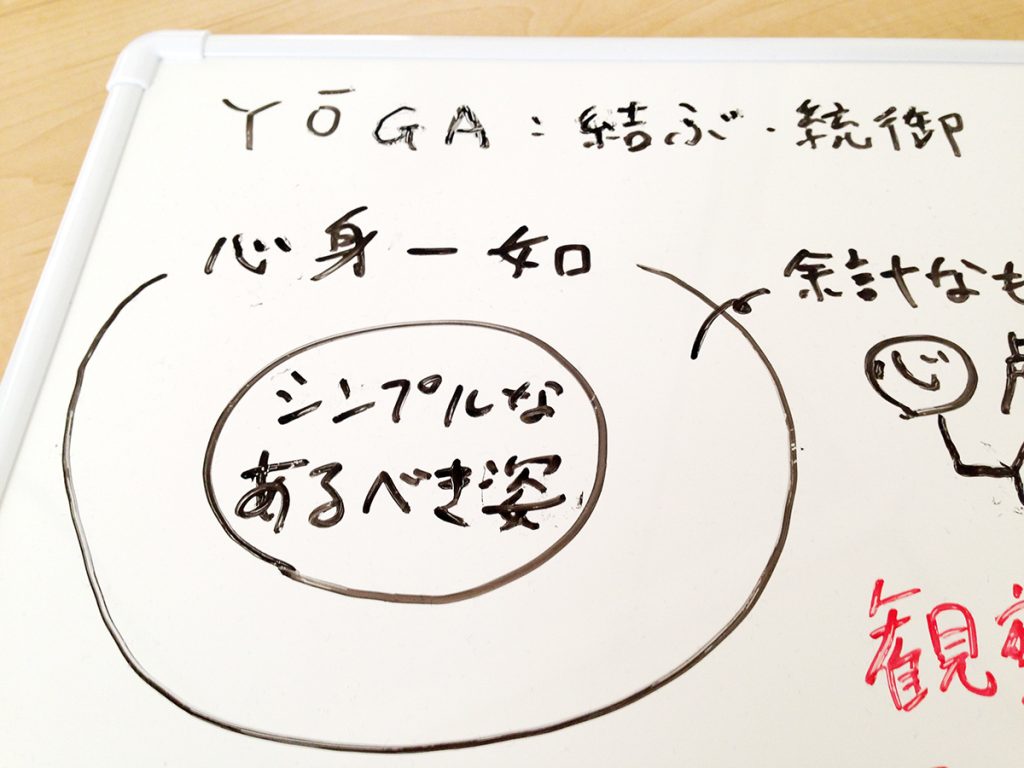 YŌGA:結ぶ・統御
心身一如
余計なも
シンプルな
あるべき姿
心
観